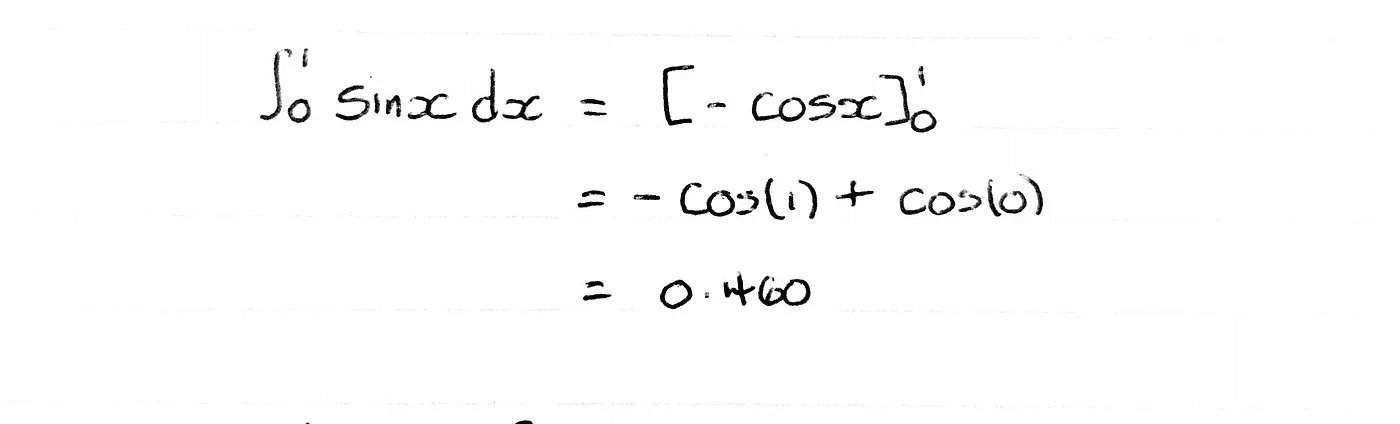 ∫₀¹ sinx dx = [- cosx]₀¹
= - cos(1) + cos(0)
= 0.460